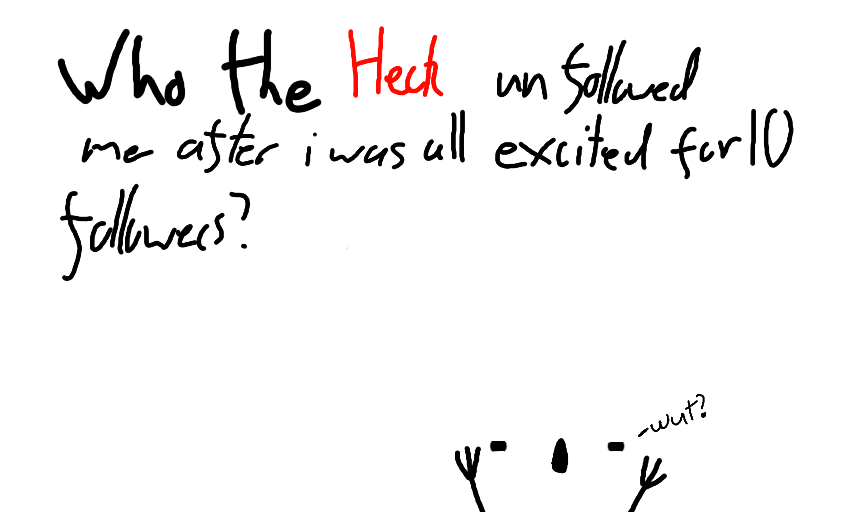 Who the Heck unfollowed
me after i was all excited for 10
followers?
-wut?